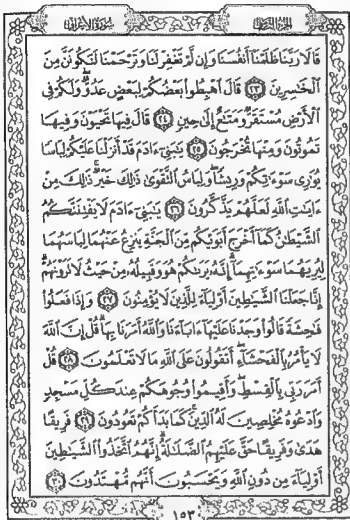 الجزء الثامن
سورة الأعراف
قَالَا رَبَّنَا ظَلَمْنَآ أَنفُسَنَا وَإِن لَّمْ تَغْفِرْ لَنَا وَتَرْحَمْنَا لَنَكُونَنَّ مِنَ
ٱلْخَٰسِرِينَ ٢٣ قَالَ ٱهْبِطُوا۟ بَعْضُكُمْ لِبَعْضٍ عَدُوٌّ ۖ وَلَكُمْ فِى
ٱلْأَرْضِ مُسْتَقَرٌّ وَمَتَٰعٌ إِلَىٰ حِينٍ ٢٤ قَالَ فِيهَا تَحْيَوْنَ وَفِيهَا
تَمُوتُونَ وَمِنْهَا تُخْرَجُونَ ٢٥ يَٰبَنِىٓ ءَادَمَ قَدْ أَنزَلْنَا عَلَيْكُمْ لِبَاسًا
يُوَٰرِى سَوْءَٰتِكُمْ وَرِيشًا ۖ وَلِبَاسُ ٱلتَّقْوَىٰ ذَٰلِكَ خَيْرٌ ۚ ذَٰلِكَ مِنْ
ءَايَٰتِ ٱللَّهِ لَعَلَّهُمْ يَذَّكَّرُونَ ٢٦ يَٰبَنِىٓ ءَادَمَ لَا يَفْتِنَنَّكُمُ
ٱلشَّيْطَٰنُ كَمَآ أَخْرَجَ أَبَوَيْكُم مِّنَ ٱلْجَنَّةِ يَنزِعُ عَنْهُمَا لِبَاسَهُمَا
لِيُرِيَهُمَا سَوْءَٰتِهِمَآ ۗ إِنَّهُۥ يَرَىٰكُمْ هُوَ وَقَبِيلُهُۥ مِنْ حَيْثُ لَا تَرَوْنَهُمْ ۗ
إِنَّا جَعَلْنَا ٱلشَّيَٰطِينَ أَوْلِيَآءَ لِلَّذِينَ لَا يُؤْمِنُونَ ٢٧ وَإِذَا فَعَلُوا۟
فَٰحِشَةً قَالُوا۟ وَجَدْنَا عَلَيْهَآ ءَابَآءَنَا وَٱللَّهُ أَمَرَنَا بِهَا ۗ قُلْ إِنَّ ٱللَّهَ
لَا يَأْمُرُ بِٱلْفَحْشَآءِ ۖ أَتَقُولُونَ عَلَى ٱللَّهِ مَا لَا تَعْلَمُونَ ٢٨ قُلْ
أَمَرَ رَبِّى بِٱلْقِسْطِ ۖ وَأَقِيمُوا۟ وُجُوهَكُمْ عِندَ كُلِّ مَسْجِدٍ
وَٱدْعُوهُ مُخْلِصِينَ لَهُ ٱلدِّينَ ۚ كَمَا بَدَأَكُمْ تَعُودُونَ ٢٩ فَرِيقًا
هَدَىٰ وَفَرِيقًا حَقَّ عَلَيْهِمُ ٱلضَّلَٰلَةُ ۗ إِنَّهُمُ ٱتَّخَذُوا۟ ٱلشَّيَٰطِينَ
أَوْلِيَآءَ مِن دُونِ ٱللَّهِ وَيَحْسَبُونَ أَنَّهُم مُّهْتَدُونَ ٣٠
١٥٣